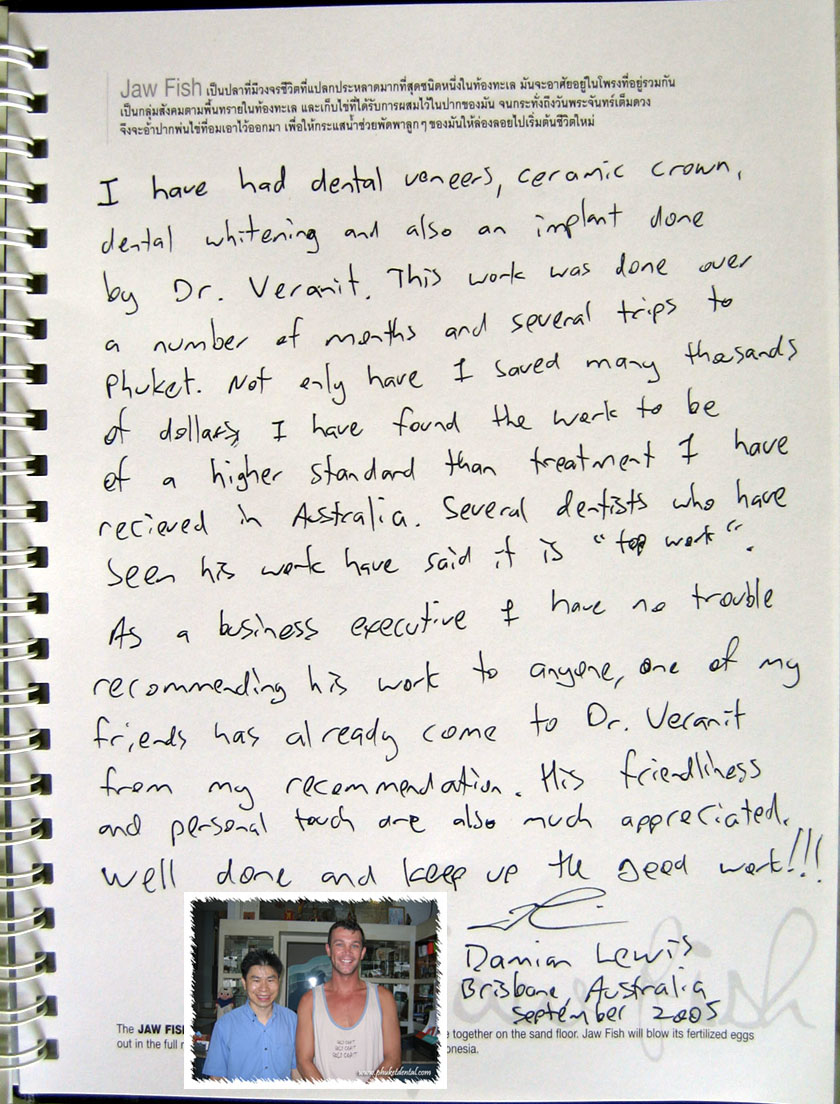 Jaw Fish เป็นปลาที่มีวงจรชีวิตที่แปลกประหลาดมากที่สุดชนิดหนึ่งในท้องทะเล มันจะอาศัยอยู่ในโพรงที่อยู่รวมกัน
เป็นกลุ่มสังคมตามพื้นทรายในท้องทะเล และเก็บไข่ที่ได้รับการผสมไว้ในปากของมัน จนกระทั่งถึงวันพระจันทร์เต็มดวง
จึงจะอ้าปากพ่นไข่ที่อมเอาไว้ออกมา เพื่อให้กระแสน้ำช่วยพัดพาลูกๆ ของมันให้ล่องลอยไปเริ่มต้นชีวิตใหม่
I have had dental veneers, ceramic crown,
dental whitening and also an implant done
by Dr. Veranit. This work was done over
a number of months and several trips to
Phuket. Not only have I saved many thousands
of dollars, I have found the work to be
of a higher standard than treatment I have
recieved in Australia. Several dentists who have
seen his work have said it is "top work".
As a business executive I have no trouble
recommending his work to anyone, one of my
friends has already come to Dr. Veranit
from my recommendation. His friendliness
and personal touch are also much appreciated.
Well done and keep up the good work!!!
Damian Lewis
Brisbane, Australia
September 2005
The JAW FIS e together on the sand floor. Jaw Fish will blow its fertilized eggs
out in the full onesia.
www.phuketdental.com